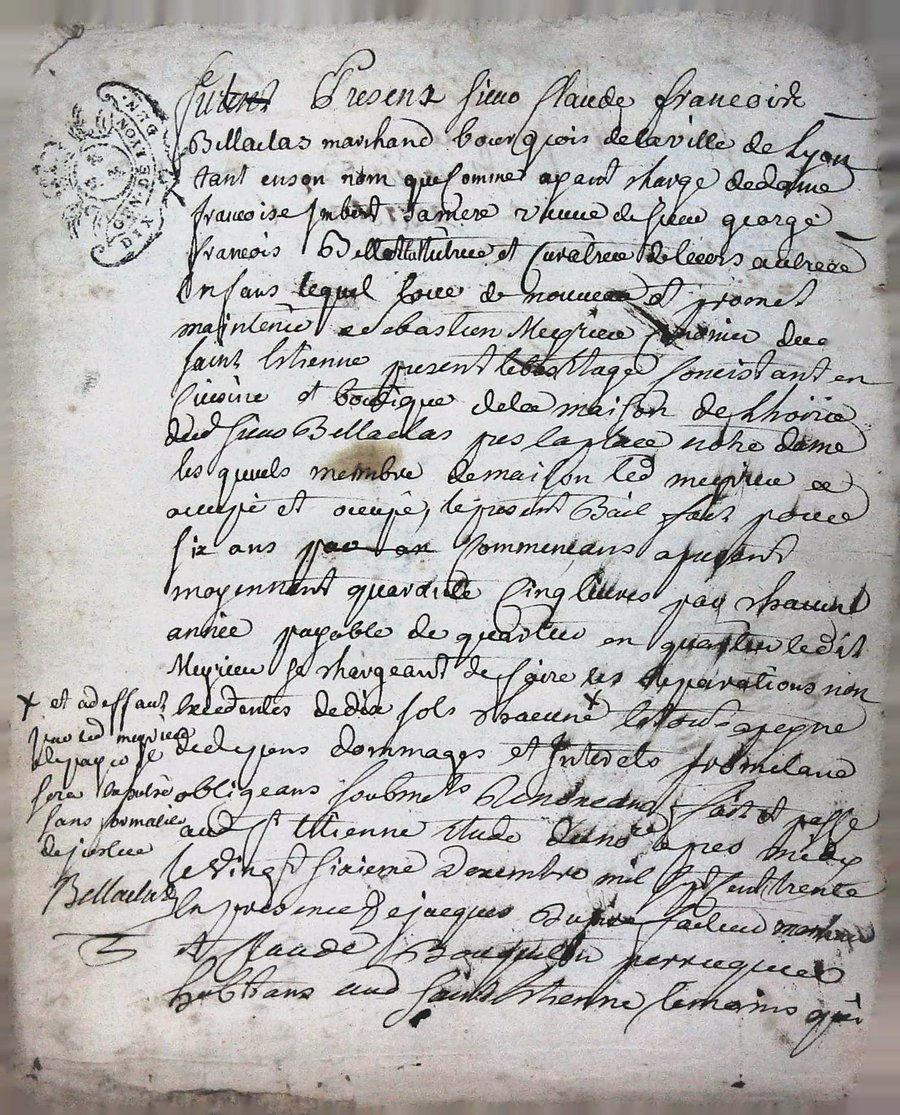 Present sieur Claude francoise
Bellaclas marchand bourgeois de la ville de Lyon
tant en son nom que comme ayant charge de dame
francoise Imbert sa mere veuve de sieur george
francois et curatrice de leurs
Enfans lequel loue de nouveau et promet
maintenir a sebastien Meyrieu du
saint Etienne present le bas Etage consistant en
cuisine et boutique de la maison de
dud sieur Bellaclas pres la place notre dame
les quels membre de maison led meyrieu a
occupé et occupe, le present Bail fait pour
six ans commencans a present
moyennent quarante cinq livres par chacune
année payable de quartier en quartier ledit
Meyrieu se chargeant de faire les reparations non
excedentes de dix sols chacune × le tout a peyne
de depens dommages et Interets promettant
obligeans soubmets Renoncant fait et passé
aud st Etienne Etude du nore apres midy
le vingt sixieme decembre mil sept cent trente
En presence de jacques
et Claude perruquier
habitans aud saint Etienne temoins qui
× et a deffaut
par led meyrieu
de payer il
sera expulsé
sans formalité
de justice
Bellaclas
GEN DE LYON
DIX